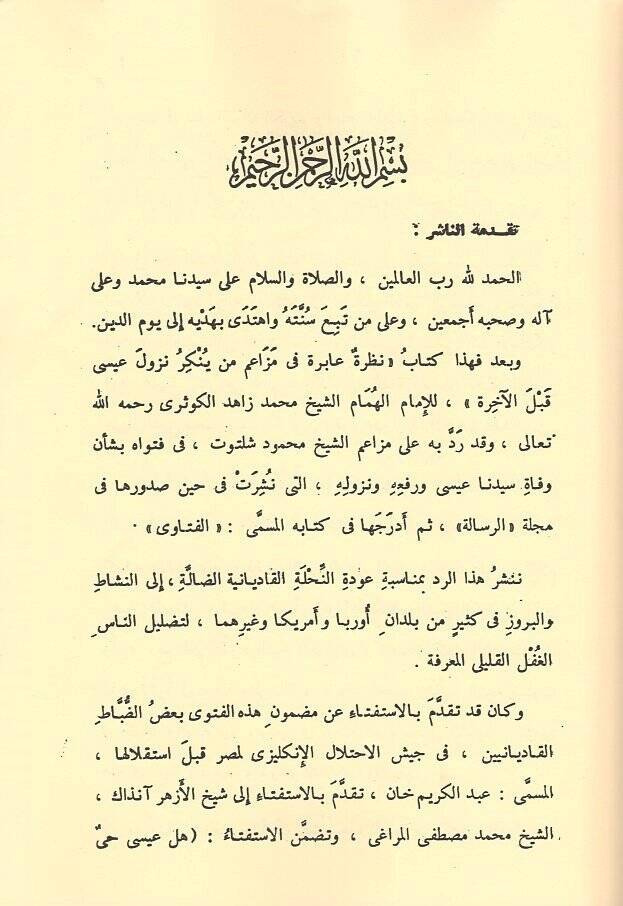 بِسْمِ اللَّهِ الرَّحْمَنِ الرَّحِيمِ
تقدمة الناشر :
الحمد لله رب العالمين ، والصلاة والسلام على سيدنا محمد وعلى
آله وصحبه أجمعين ، وعلى من تَبِعَ سُنَّتَهُ واهتَدَى بهَدْيِه إلى يوم الدين.
وبعد فهذا كتابُ « نظرةٌ عابرة فى مَزَاعم من يُنْكِرُ نزولَ عيسى
قَبْلَ الآخِرة » ، للإمام الهُمَام الشيخ محمد زاهد الكوثرى رحمه الله
تعالى ، وقد رَدَّ به على مزاعم الشيخ محمود شلتوت ، فى فتواه بشأن
وفاةِ سيدنا عيسى ورفعِهِ ونزولِهِ ، التى نُشِرَتْ فى حين صدورها فى
مجلة «الرسالة» ، ثم أَدرَجَها فى كتابه المسمَّى : « الفتاوى» .
ننشرُ هذا الرد بمناسبةِ عودةِ النِّحْلَةِ القاديانية الضالَّةِ ، إلى النشاطِ
والبروزِ فى كثيرٍ من بلدانِ أُوربا وأَمريكا وغيرِهما ، لتضليل الناسِ
الغُفْل القليلى المعرفة .
وكان قد تقدَّمَ بالاستفتاء عن مضمونِ هذه الفتوى بعضُ الضُّبَّاطِ
القاديانيين ، فى جيش الاحتلال الإنكليزى لمصر قبلَ استقلالها ،
المسمَّى : عبد الكريم خان ، تقدَّمَ بالاستفتاء إلى شيخ الأزهر آنذاك ،
الشيخ محمد مصطفى المراغى ، وتضمَّن الاستفتاءُ : (هل عيسى حىٌّ